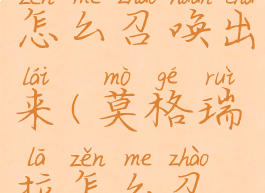 zěn me zhào huàn chū
怎么召唤出
lái mò gé ruì
来（莫格瑞
lā zěn me zhào
拉怎么召